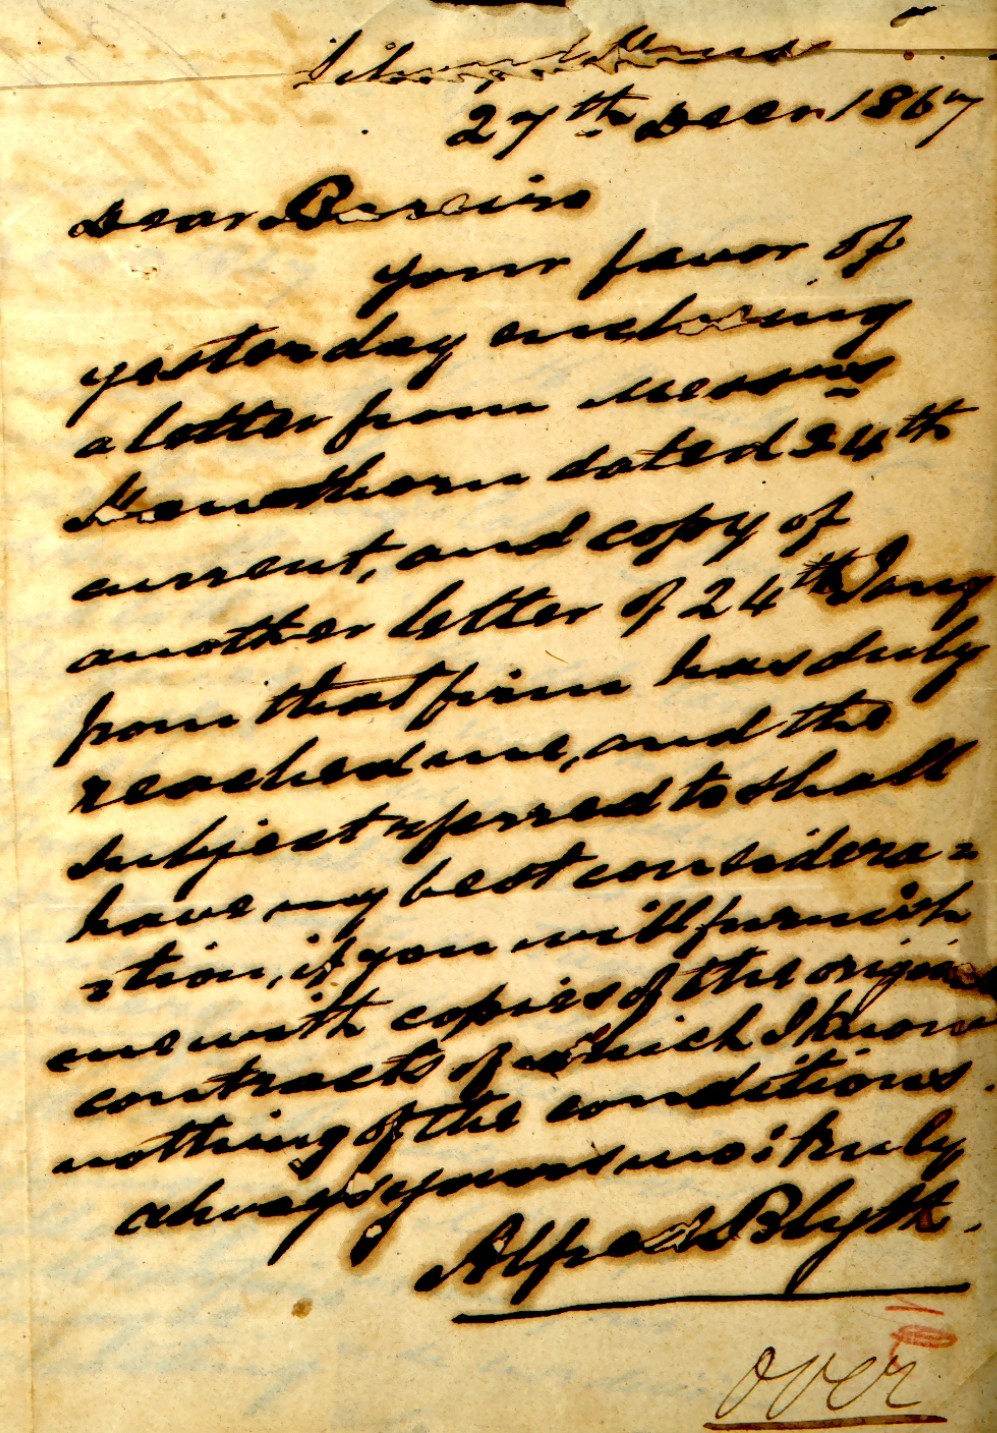 27th Decer. 1867
Dear Pereira
your favor of
yesterday enclosing
a letter from Messrs
Hawthorn dated 24th
current, and copy of
another letter of 24th Jany
from that firm has duly
reached me, and the
subject referred to shall
have my best considera=
=tion, if you will furnish
me with copies of the original
contracts of which I know
nothing of the conditions.
always yours mo: truly
Alfred Blyth.
over